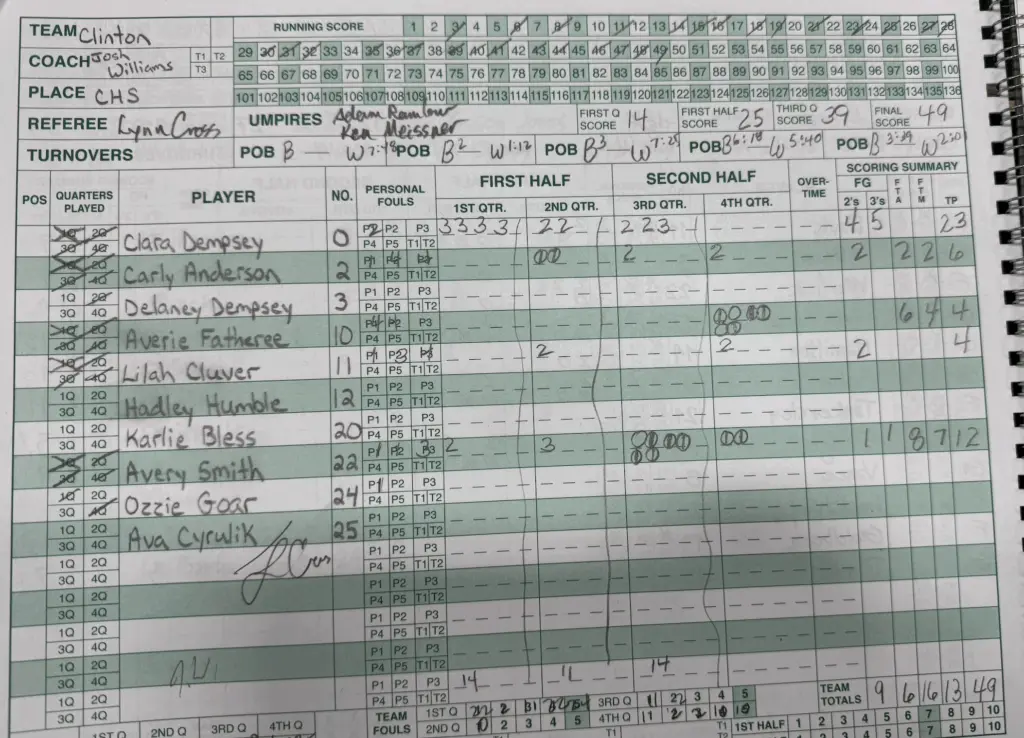 TEAM Clinton RUNNING SCORE 1 2 3 4 5 6 7 8 9 10 11 12 13 14 15 16 17 18 19 20 21 22 23 24 25 26 27 28
COACH Josh Williams T1 T2 T3 29 30 31 32 33 34 35 36 37 38 39 40 41 42 43 44 45 46 47 48 49 50 51 52 53 54 55 56 57 58 59 60 61 62 63 64
65 66 67 68 69 70 71 72 73 74 75 76 77 78 79 80 81 82 83 84 85 86 87 88 89 90 91 92 93 94 95 96 97 98 99 100
PLACE CHS 101 102 103 104 105 106 107 108 109 110 111 112 113 114 115 116 117 118 119 120 121 122 123 124 125 126 127 128 129 130 131 132 133 134 135 136
REFEREE Lynn Cross UMPIRES Adam Ken Meissner FIRST Q SCORE 14 FIRST HALF SCORE 25 THIRD Q SCORE 39 FINAL SCORE 49
TURNOVERS POB B — W 7:48 POB B2 — W 1:12 POB B3 W 7:25 POB B 6:18 W 5:40 POB B 3:39 W 2:50
POS QUARTERS PLAYED PLAYER NO. PERSONAL FOULS FIRST HALF 1ST QTR. 2ND QTR. SECOND HALF 3RD QTR. 4TH QTR. OVER-TIME SCORING SUMMARY FG 2's 3's FTA FTM TP
1Q 2Q 3Q 4Q Clara Dempsey 0 P1 P2 P3 P4 P5 T1 T2 3 3 3 3 2 2 2 2 3 4 5 23
1Q 2Q 3Q 4Q Carly Anderson 2 P1 P2 P3 P4 P5 T1 T2 2 2 2 2 2 6
1Q 2Q 3Q 4Q Delaney Dempsey 3 P1 P2 P3 P4 P5 T1 T2
1Q 2Q 3Q 4Q Averie Fatheree 10 P1 P2 P3 P4 P5 T1 T2 6 4 4
1Q 2Q 3Q 4Q Lilah Cluver 11 P1 P2 P3 P4 P5 T1 T2 2 2 2 4
1Q 2Q 3Q 4Q Hadley Humble 12 P1 P2 P3 P4 P5 T1 T2
1Q 2Q 3Q 4Q Karlie Bless 20 P1 P2 P3 P4 P5 T1 T2
1Q 2Q 3Q 4Q Avery Smith 22 P1 P2 P3 P4 P5 T1 T2 2 3 1 1 8 7 12
1Q 2Q 3Q 4Q Ozzie Goar 24 P1 P2 P3 P4 P5 T1 T2
1Q 2Q 3Q 4Q Ava Cyrulik 25 P1 P2 P3 P4 P5 T1 T2
1Q 2Q 3Q 4Q P1 P2 P3 P4 P5 T1 T2
1Q 2Q 3Q 4Q P1 P2 P3 P4 P5 T1 T2
1Q 2Q 3Q 4Q P1 P2 P3 P4 P5 T1 T2
1Q 2Q 3Q 4Q P1 P2 P3 P4 P5 T1 T2
1Q 2Q 3Q 4Q P1 P2 P3 P4 P5 T1 T2 14 11 14
TEAM FOULS 1ST Q 2 3RD Q 3 4 5 TEAM TOTALS 9 6 16 13 49
1ST Q 2ND Q 3RD Q 4TH Q 2ND Q 2 3 4 5 4TH Q T1 T2 1ST HALF 1 2 3 4 5 6 7 8 9 10
T1 7 8 9 10